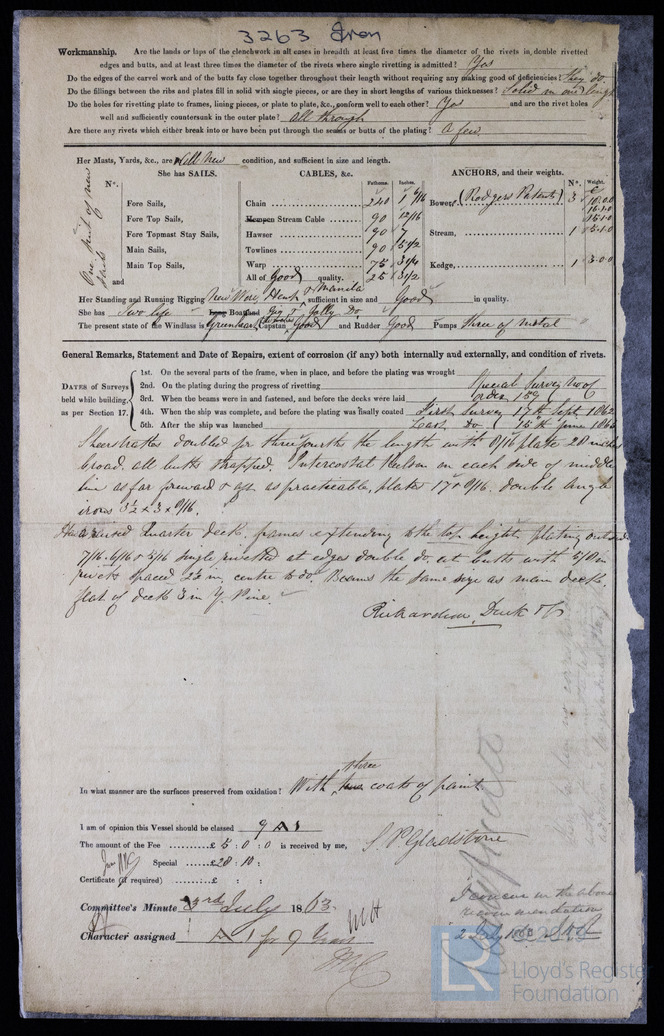 3263 Iron
Workmanship. Are the lands or laps of the clenchwork in all cases in breadth at least five times the diameter of the rivets in double rivetted
edges and butts, and at least three times the diameter of the rivets where single rivetting is admitted? Yes
Do the edges of the carvel work and of the butts fay close together throughout their length without requiring any making good of deficiencies? they do
Do the fillings between the ribs and plates fill in solid with single pieces, or are they in short lengths of various thicknesses? Solid in one length
Do the holes for rivetting plate to frames, lining pieces, or plate to plate, &c., conform well to each other? Yes and are the rivet holes
well and sufficiently countersunk in the outer plate? all through
Are there any rivets which either break into or have been put through the seams or butts of the plating? A few
Her Masts, Yards, &c., are All New condition, and sufficient in size and length.
She has SAILS. CABLES, &c. ANCHORS, and their weights.
N°. Fathoms. Inches. N°. Weight.
One suit of new sails
and
Fore Sails, Chain 240 1 6/16 Bower, (Rodgers Patents) 3
Fore Top Sails, Hempen Stream Cable 90 12/16
Fore Topmast Stay Sails, Hawser 90 7 Stream, 1
Main Sails, Towlines 90 5 1/2
Main Top Sails, Warp 75 Kedge, 1
All of Good quality. 25 3 1/2
Her Standing and Running Rigging New Wire, Hemp & Manila sufficient in size and Good in quality.
She has Two life Long Boat and Gig & Jolly Do.
The present state of the Windlass is Greenheart Capstan Good and Rudder Good Pumps three of metal
General Remarks, Statement and Date of Repairs, extent of corrosion (if any) both internally and externally, and condition of rivets.
DATES of Surveys held while building, as per Section 17.
1st. On the several parts of the frame, when in place, and before the plating was wrought
2nd. On the plating during the progress of rivetting Special Survey No of
3rd. When the beams were in and fastened, and before the decks were laid order 159
4th. When the ship was complete, and before the plating was finally coated First Survey 17th Sept. 1862
5th. After the ship was launched Last Do. 15th June 1863
Sheerstrakes doubled for three fourths the length with 9/16 plate 20 inches
broad. all butts strapped. Intercostal Keelson on each side of middle
line as far forward & aft as practicable, plates 17 x 9/16. double Angle
irons 3 1/2 x 3 x 9/16.
Has a raised Quarter deck. frames extending to the top height. plating outside
7/16. 6/16 & 5/16 single rivetted at edges double do. at butts with 5/8 in
rivets spaced 2 1/2 in. centre to do. Beams the same size as main deck.
flat of deck 3 in Y. Pine.
Richardson, Duck & Co
In what manner are the surfaces preserved from oxidation? With three coats of paint
I am of opinion this Vessel should be classed 9 A 1
The amount of the Fee £5 : 0 : 0 is received by me, S. P. Gladstone
Special £28 : 10 :
Certificate (if required) £ : :
Committee's Minute 3rd July 1863
Character assigned A 1 for 9 Years
I concur in the above
recommendation
2 July 1863
LR
Lloyd's Register
Foundation